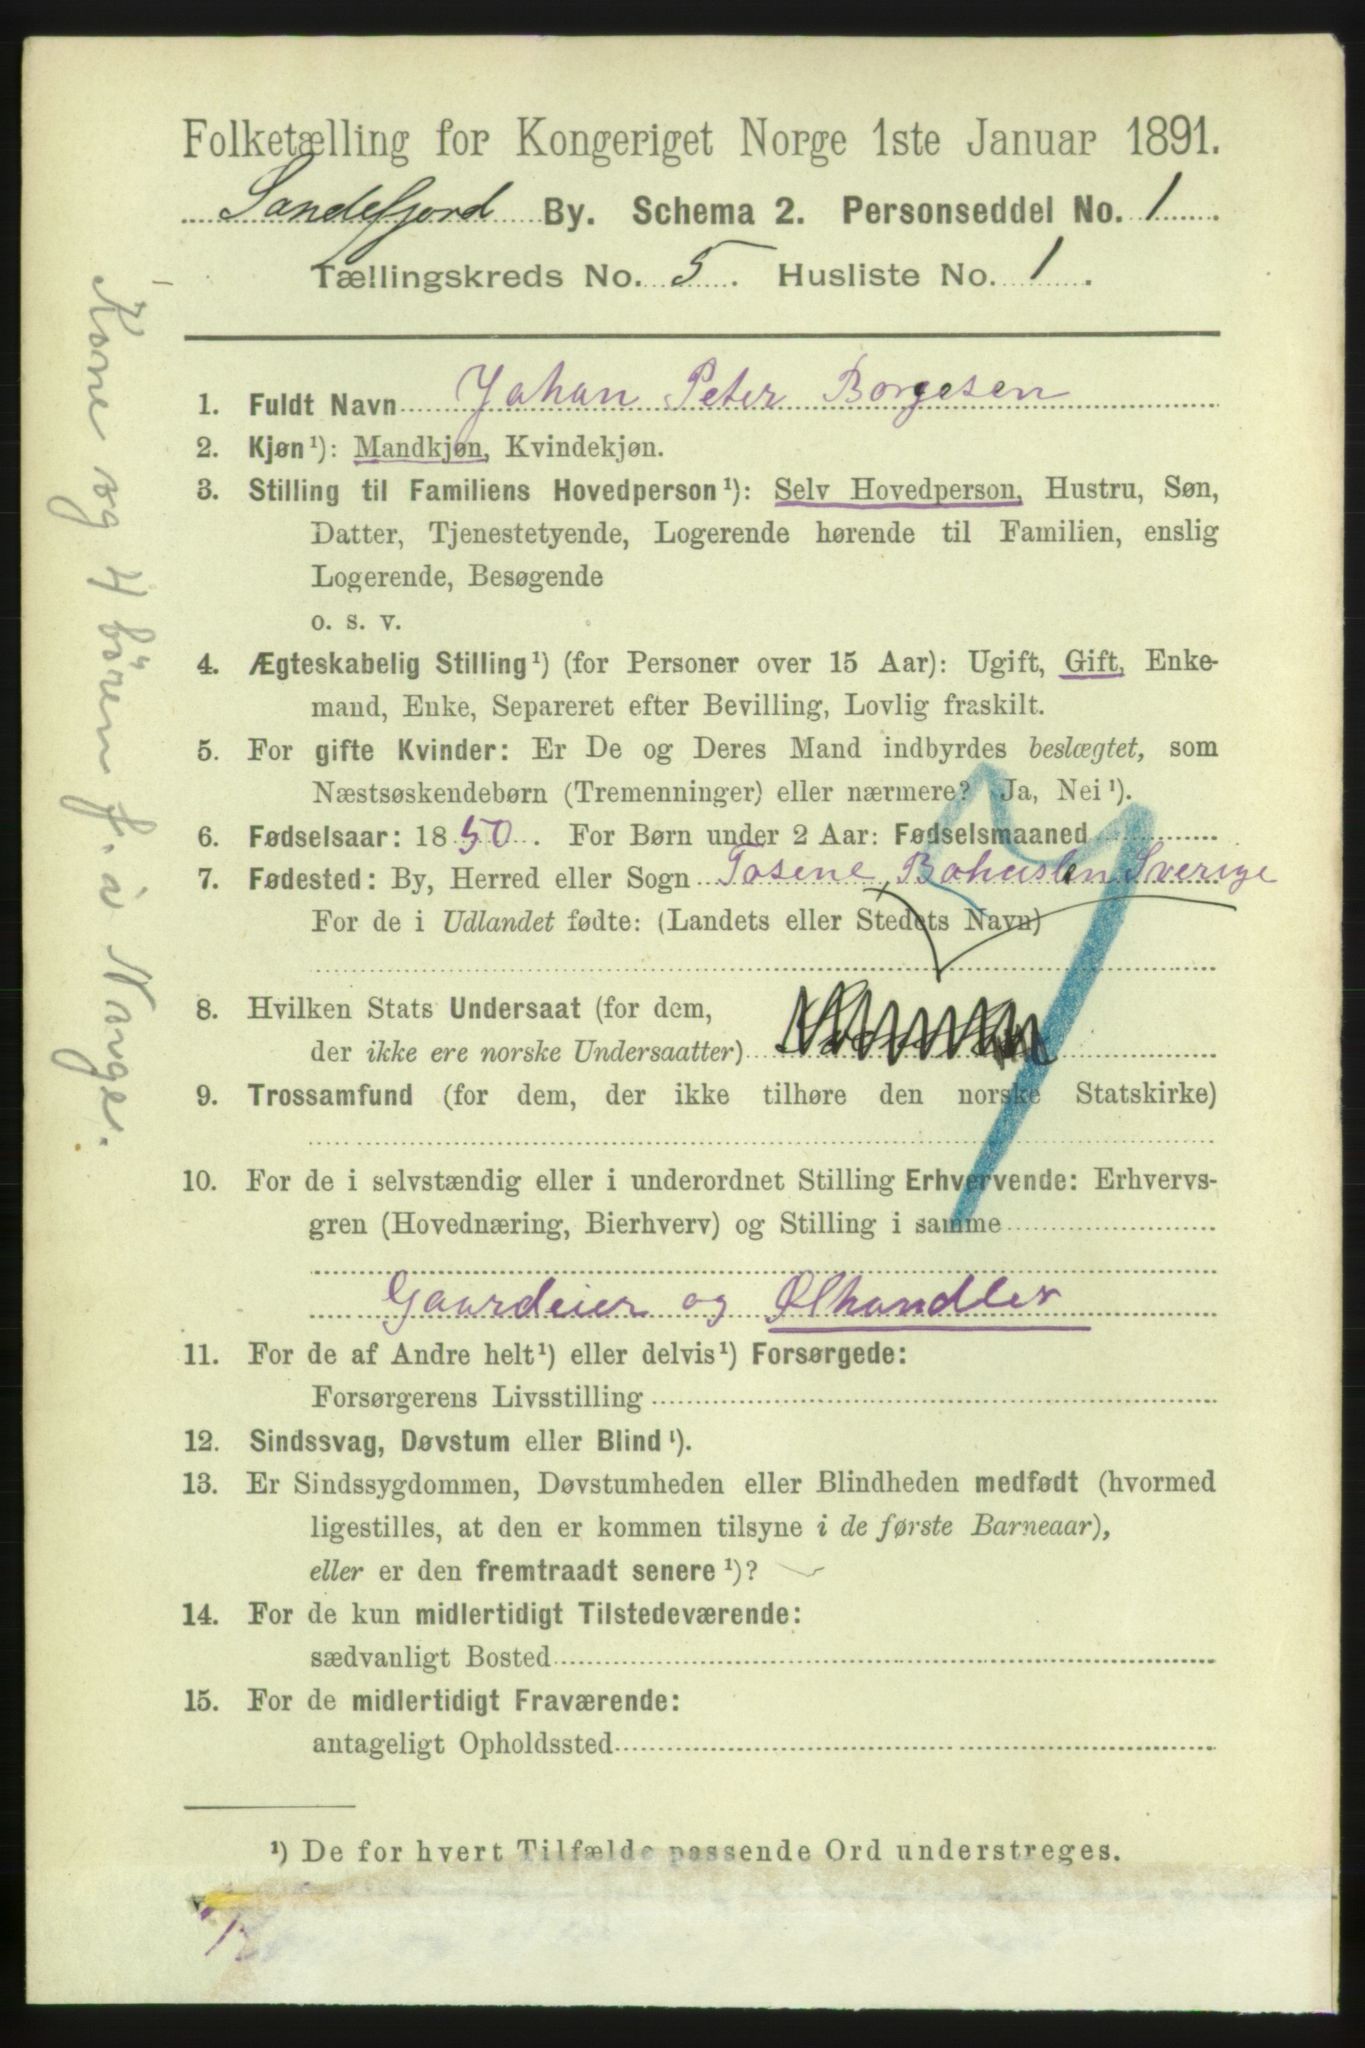 Folketælling for Kongeriget Norge 1ste Januar 1891.
Sandefjord By. Schema 2. Personseddel No. 1.
Tællingskreds No. 5. Husliste No. 1.
1. Fuldt Navn Johan Peter Borgesen
2. Kjøn¹): Mandkjøn, Kvindekjøn.
3. Stilling til Familiens Hovedperson¹): Selv Hovedperson, Hustru, Søn,
Datter, Tjenestetyende, Logerende hørende til Familien, enslig
Logerende, Besøgende
o. s. v.
4. Ægteskabelig Stilling¹) (for Personer over 15 Aar): Ugift, Gift, Enke-
mand, Enke, Separeret efter Bevilling, Lovlig fraskilt.
5. For gifte Kvinder: Er De og Deres Mand indbyrdes beslægtet, som
Næstsøskendebørn (Tremenninger) eller nærmere? Ja, Nei¹).
6. Fødselsaar: 1850. For Børn under 2 Aar: Fødselsmaaned
7. Fødested: By, Herred eller Sogn Tosene, Bohuslen Sverige
For de i Udlandet fødte: (Landets eller Stedets Navn)
8. Hvilken Stats Undersaat (for dem,
der ikke ere norske Undersaatter)
9. Trossamfund (for dem, der ikke tilhøre den norske Statskirke)
10. For de i selvstændig eller i underordnet Stilling Erhvervende: Erhvervs-
gren (Hovednæring, Bierhverv) og Stilling i samme
Gaardeier og Ølhandler
11. For de af Andre helt¹) eller delvis¹) Forsørgede:
Forsørgerens Livsstilling
12. Sindssvag, Døvstum eller Blind¹).
13. Er Sindssygdommen, Døvstumheden eller Blindheden medfødt (hvormed
ligestilles, at den er kommen tilsyne i de første Barneaar),
eller er den fremtraadt senere¹)?
14. For de kun midlertidigt Tilstedeværende:
sædvanligt Bosted
15. For de midlertidigt Fraværende:
antageligt Opholdssted
¹) De for hvert Tilfælde passende Ord understreges.
Kone og 4 börn f. i Norge.